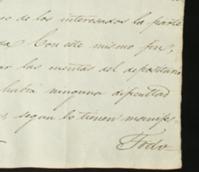 de los interesados la parte
Con este mismo fin,
las cuentas del depositario
habia ninguna dificultad
segun lo tienen manifes-
Todo